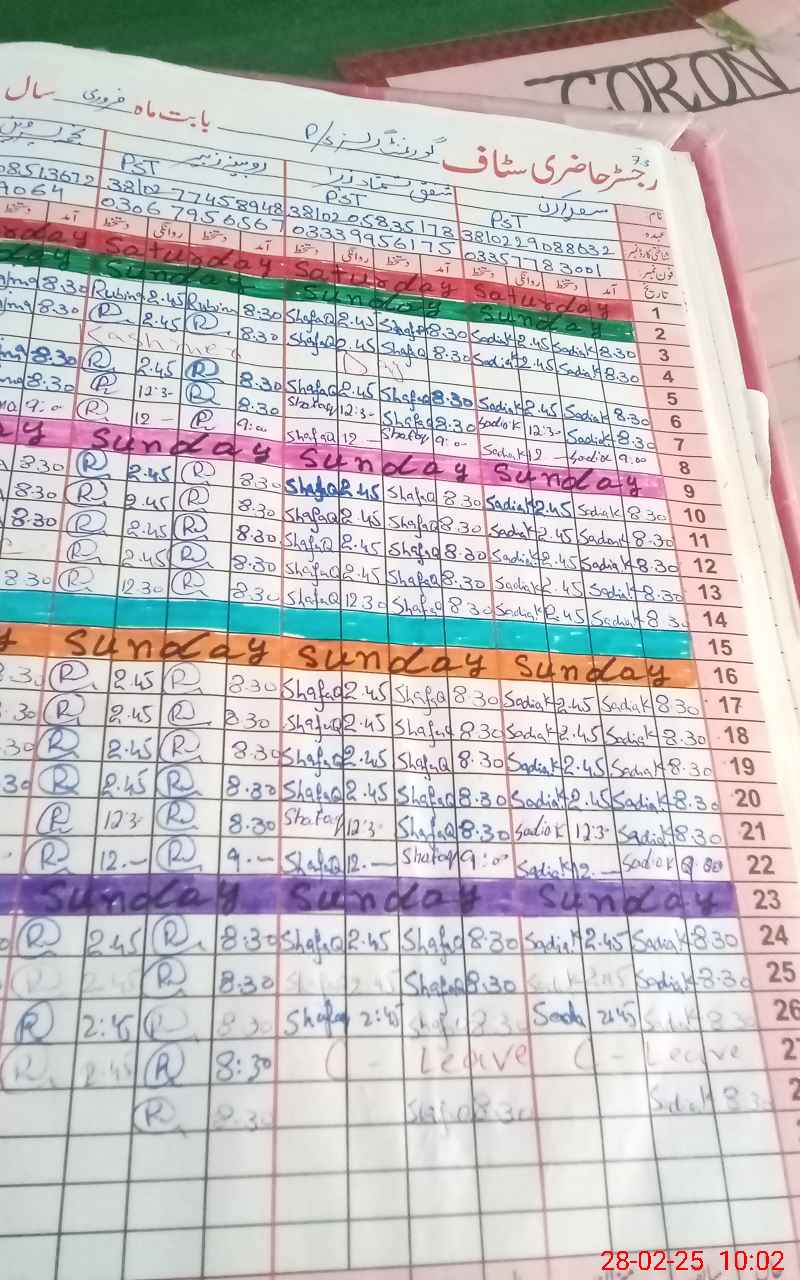 CORON
رجسٹر حاضری سٹاف گورنمنٹ گرلز P/S بابت ماہ فروری سال
73
نام
عہدہ PST PST PST
شناختی کارڈ نمبر 3810229088632 38102 05835178 38102 77458948 08513672
فون نمبر 03357783001 03339956175 0306 7956567 9064
تاریخ آمد دستخط روانگی دستخط آمد دستخط روانگی دستخط آمد دستخط روانگی دستخط
Saturday Saturday Saturday 1
Sunday Sunday Sunday 2
8:30 Rubina 2.45 Rubina 8:30 ShafaQ 2.45 ShafaQ 8.30 SadiaK 2.45 SadiaK 8.30 3
8.30 R 2.45 R 8.30 ShafaQ 2.45 ShafaQ 8.30 SadiaK 2.45 SadiaK 8.30 4
Kashmer Day 5
8.30 R 2.45 R 8.30 ShafaQ 2.45 ShafaQ 8.30 SadiaK 2.45 SadiaK 8.30 6
8.30 R 12:3- R 8.30 Shafaq 12:3- ShafaQ 8.30 Sadiak 12:3- SadiaK 8.30 7
9:00 R 12 - R 9:00 ShafaQ 12 - Shafaq 9:00 SadiaK 12 - Sadia 9:00 8
Sunday Sunday Sunday 9
8.30 R 2.45 R 8.30 ShafaQ 2.45 ShafaQ 8.30 SadiaK 2.45 SadiaK 8.30 10
8.30 R 2.45 R 8.30 ShafaQ 2.45 ShafaQ 8.30 SadiaK 2.45 SadiaK 8.30 11
8.30 R 2.45 R 8.30 ShafaQ 2.45 ShafaQ 8.30 SadiaK 2.45 SadiaK 8.30 12
R 2.45 R 8.30 ShafaQ 2.45 ShafaQ 8.30 SadiaK 2.45 SadiaK 8.30 13
8.30 R 12.30 R 8.30 ShafaQ 12.30 ShafaQ 8.30 SadiaK 2.45 SadiaK 8.30 14
15
Sunday Sunday Sunday 16
8.30 R 2.45 R 8.30 ShafaQ 2.45 ShafaQ 8.30 SadiaK 2.45 SadiaK 8.30 17
.30 R 2.45 R 8.30 ShafaQ 2.45 ShafaQ 8.30 SadiaK 2.45 SadiaK 8.30 18
30 R 2.45 R 8.30 ShafaQ 2.45 ShafaQ 8.30 SadiaK 2.45 SadiaK 8.30 19
30 R 2.45 R 8.30 ShafaQ 2.45 ShafaQ 8.30 SadiaK 2.45 SadiaK 8.30 20
R 12:3- R 8.30 Shafaq 12:3- ShafaQ 8.30 Sadiak 12:3- SadiaK 8.30 21
R 12.- R 9.- ShafaQ 12.- Shafaq 9:00 SadiaK 12.- Sadiak 9.00 22
Sunday Sunday Sunday 23
R 2.45 R 8.30 ShafaQ 2.45 ShafaQ 8.30 SadiaK 2.45 SadiaK 8.30 24
R 2.45 R 8.30 ShafaQ 2.45 ShafaQ 8.30 SadiaK 2.45 SadiaK 8.30 25
R 2:45 R 8.30 Shafaq 2:45 ShafaQ 8.30 Sadia 2:45 SadiaK 8.30 26
R 2.45 R 8:30 C - Leave C - Leave 2
R 8.30 ShafaQ 8.30 SadiaK 8.30 2
28-02-25 10:02